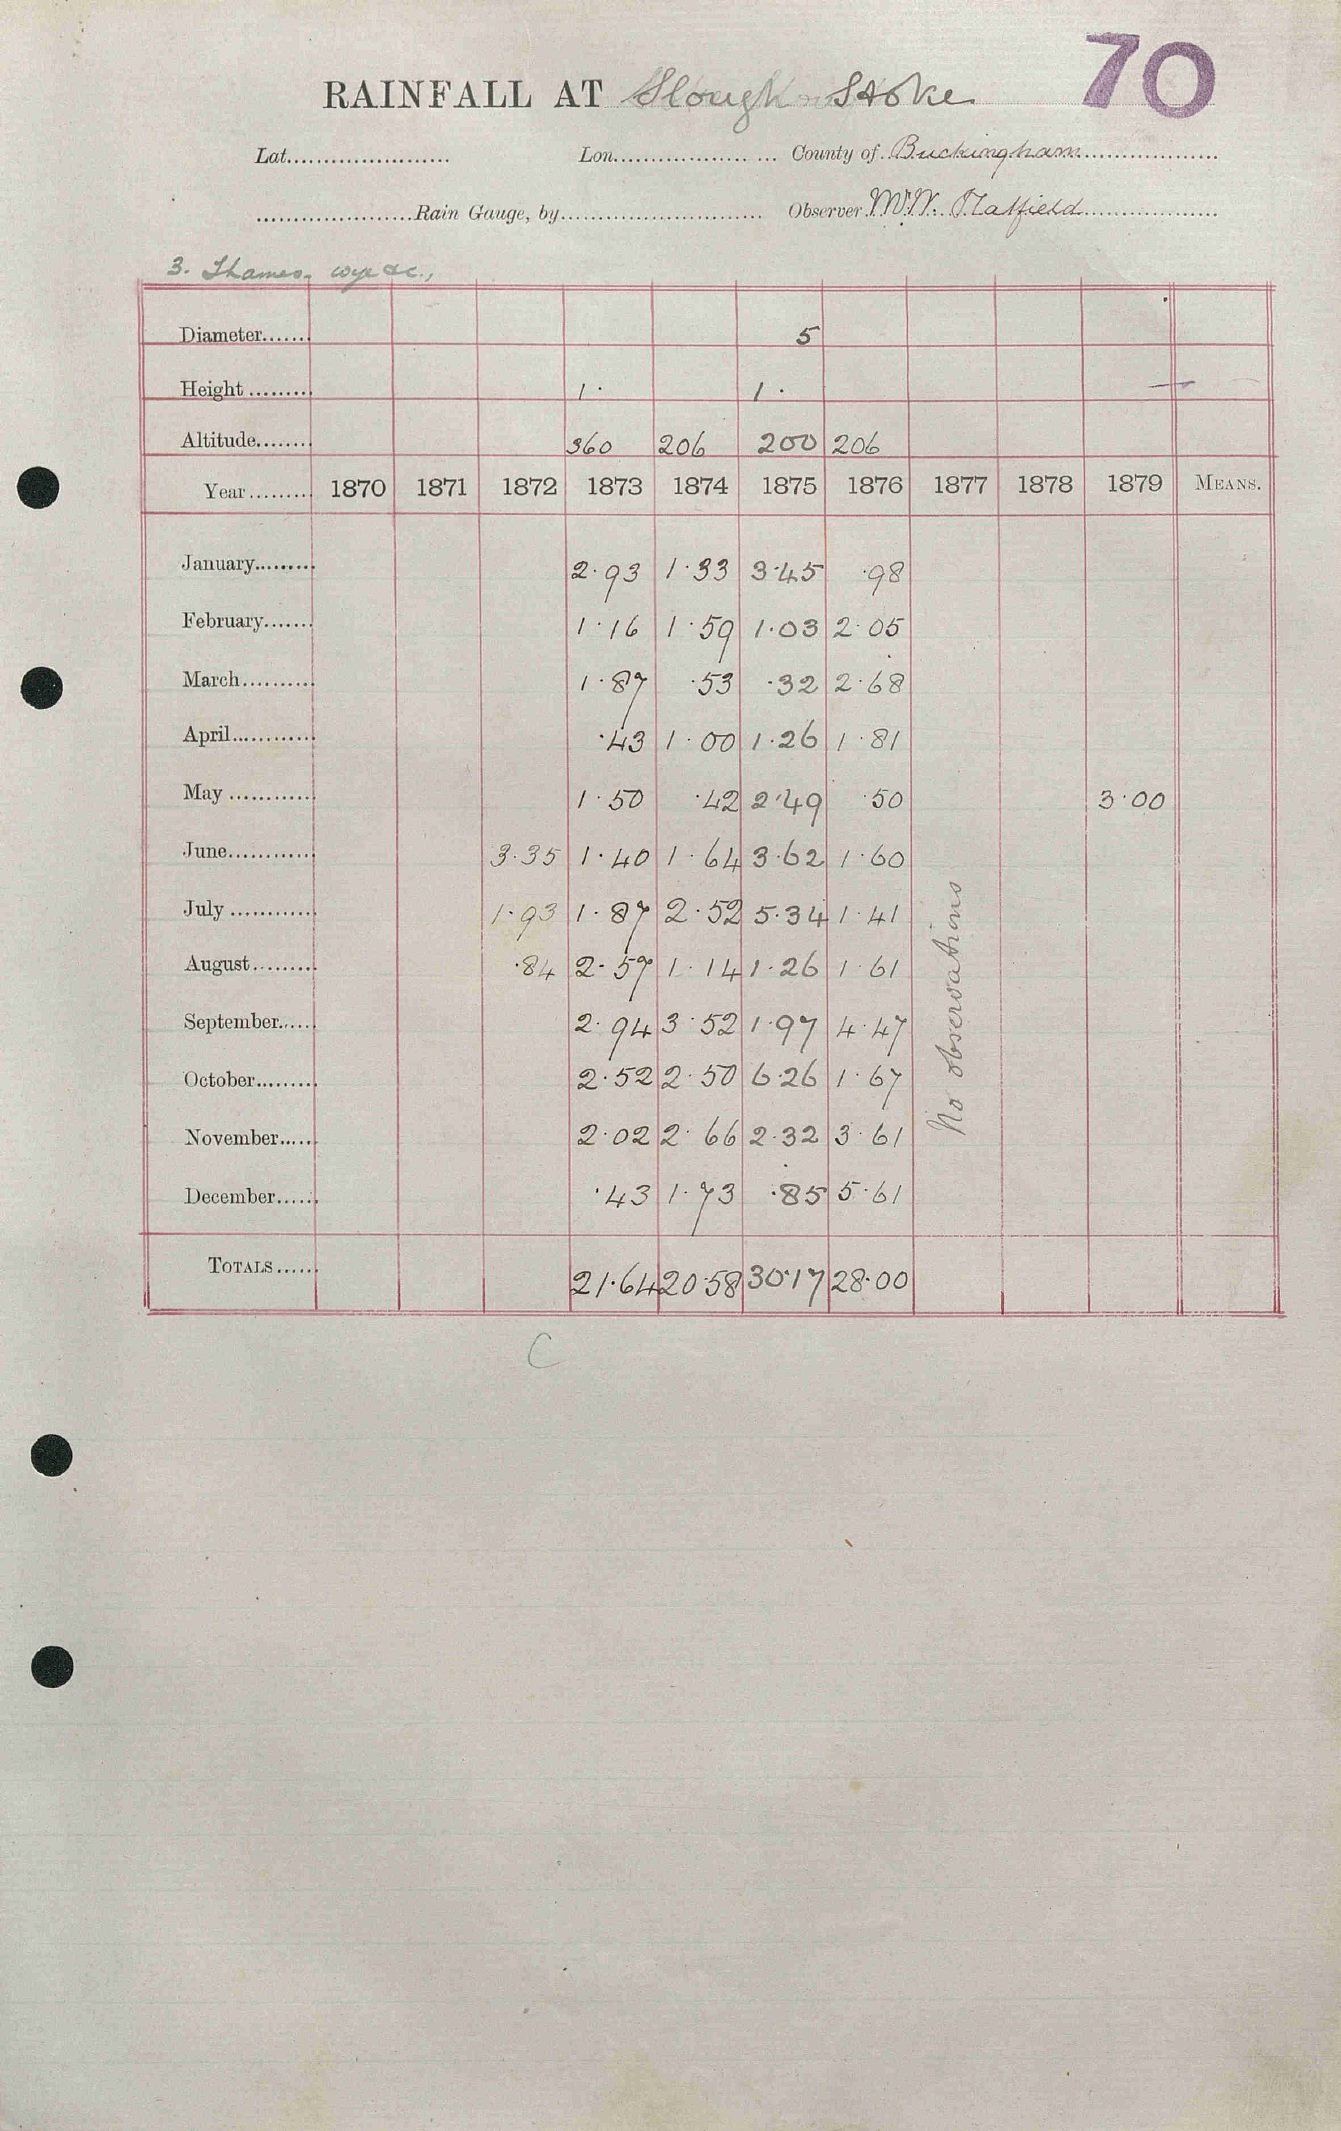 70
RAINFALL AT Slough Stoke
Lat. Lon. County of Buckingham
Rain Gauge, by Observer Mr W. Hatfield
3. Thames, wye &c.,
Diameter 5
Height 1· 1·
Altitude 360 206 200 206
Year 1870 1871 1872 1873 1874 1875 1876 1877 1878 1879 MEANS.
January 2·93 1·33 3·45 ·98
February 1·16 1·59 1·03 2·05
March 1·87 ·53 ·32 2·68
April ·43 1·00 1·26 1·81
May 1·50 ·42 2·49 ·50 3·00
June 3·35 1·40 1·64 3·62 1·60
July 1·93 1·87 2·52 5·34 1·41
August ·84 2·57 1·14 1·26 1·61
September 2·94 3·52 1·97 4·47
October 2·52 2·50 6·26 1·67
November 2·02 2·66 2·32 3·61
December ·43 1·73 ·85 5·61
No observations
TOTALS 21·64 20·58 30·17 28·00
C